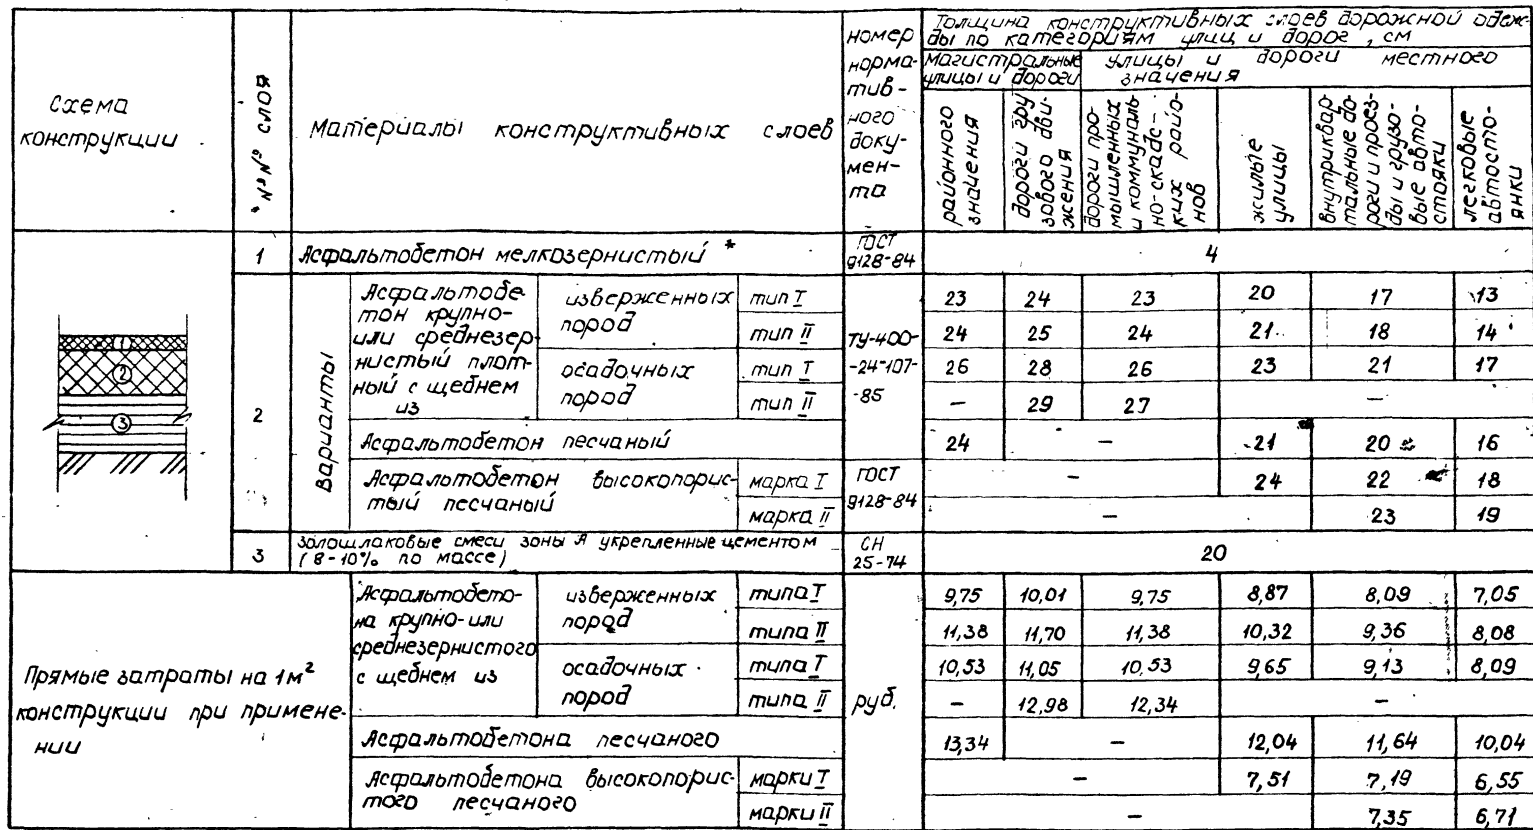 Схема
конструкции
№№ слоя
Материалы конструктивных слоев
номер
норма-
тив-
ного
доку-
мен-
та
Толщина конструктивных слоев дорожной одеж-
ды по категориям улиц и дорог, см
Магистральные
улицы и дороги
улицы и дороги местного
значения
районного
значения
дороги гру
зового дви-
жения
дороги про-
мышленных
и коммуналь-
но-складс-
ких райо-
нов
жилые
улицы
внутриквар
тальные до-
роги и проез-
ды и грузо-
вые авто-
стоянки
легковые
автостоя-
янки
1 Асфальтобетон мелкозернистый * ГОСТ 9128-84 4
2
Варианты
Асфальтобе
тон крупно-
или среднезер-
нистый плот-
ный с щебнем
из
изверженных
пород
тип I 23 24 23 20 17 13
тип II 24 25 24 21 18 14
осадочных
пород
тип I 26 28 26 23 21 17
тип II – 29 27 –
ТУ-400-
-24-107-
-85
Асфальтобетон песчаный 24 – 21 20 16
Асфальтобетон высокопорис-
тый песчаный
ГОСТ
9128-84
марка I – 24 22 18
марка II – 23 19
3 Золошлаковые смеси зоны А укрепленные цементом
(8-10% по массе)
СН
25-74
20
①
②
③
Прямые затраты на 1м²
конструкции при примене-
нии
Асфальтобето-
на крупно-или
среднезернистого
с щебнем из
изверженных
пород
типа I 9,75 10,01 9,75 8,87 8,09 7,05
типа II 11,38 11,70 11,38 10,32 9,36 8,08
осадочных
пород
типа I 10,53 11,05 10,53 9,65 9,13 8,09
типа II – 12,98 12,34 –
руб.
Асфальтобетона песчаного 13,34 – 12,04 11,64 10,04
Асфальтобетона высокопорис-
того песчаного
марки I – 7,51 7,19 6,55
марки II – 7,35 6,71